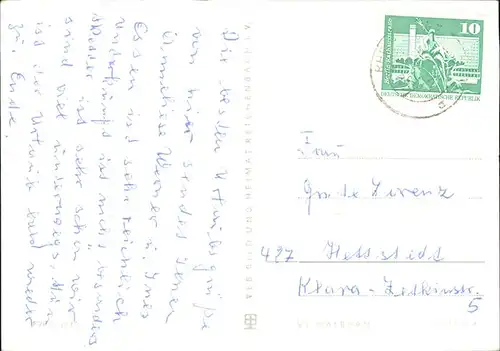 Die besten Urlaubsgrüße
von hier sendet Jenen
Anneliese Werner u. Ines
Essen ist sehr reichlich
Unterkunft ist nicht besonders
Wetter ist sehr schön wir
sind viel unterwegs. Nun
ist der Urlaub bald wieder
zu Ende.
VERBAND BILD UND HEIMAT REICHENBACH
10
DEUTSCHE DEMOKRATISCHE REPUBLIK
Frau
Lorenz
427 Hettstedt
Klara-Zetkinstr.
5